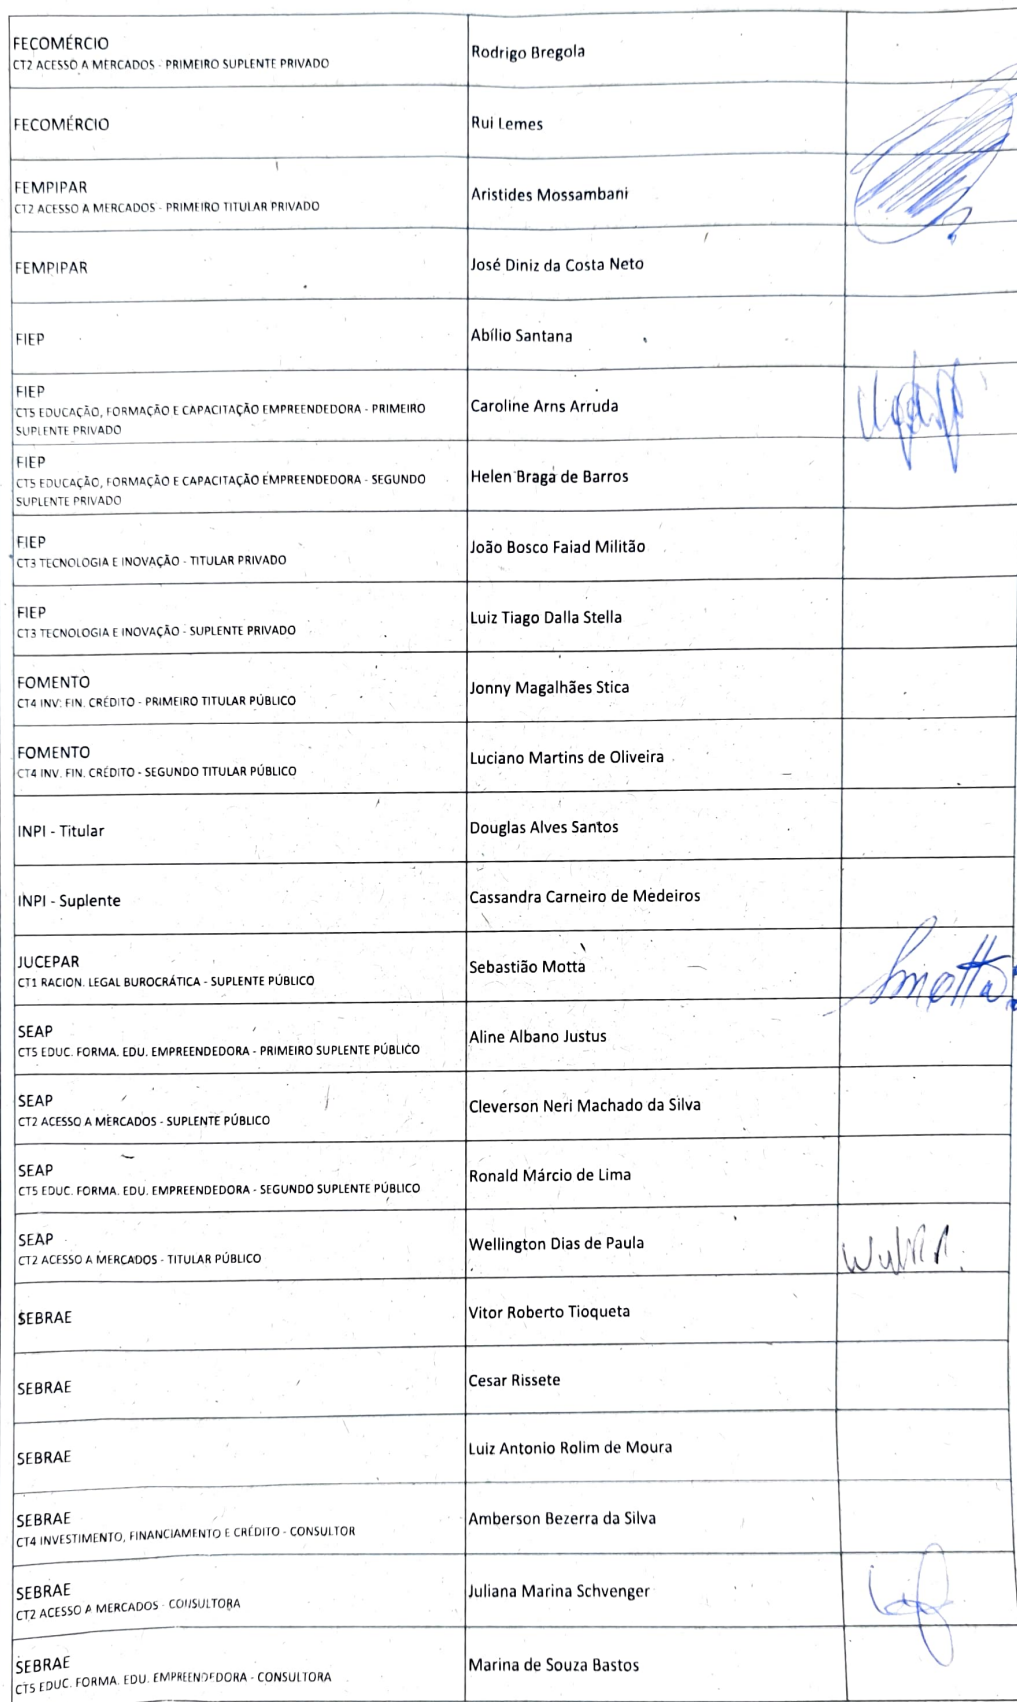 FECOMÉRCIO
CT2 ACESSO A MERCADOS - PRIMEIRO SUPLENTE PRIVADO
Rodrigo Bregola
FECOMÉRCIO
Rui Lemes
FEMPIPAR
CT2 ACESSO A MERCADOS - PRIMEIRO TITULAR PRIVADO
Aristides Mossambani
FEMPIPAR
José Diniz da Costa Neto
FIEP
Abílio Santana
FIEP
CT5 EDUCAÇÃO, FORMAÇÃO E CAPACITAÇÃO EMPREENDEDORA - PRIMEIRO
SUPLENTE PRIVADO
Caroline Arns Arruda
FIEP
CT5 EDUCAÇÃO, FORMAÇÃO E CAPACITAÇÃO EMPREENDEDORA - SEGUNDO
SUPLENTE PRIVADO
Helen Braga de Barros
FIEP
CT3 TECNOLOGIA E INOVAÇÃO - TITULAR PRIVADO
João Bosco Faiad Militão
FIEP
CT3 TECNOLOGIA E INOVAÇÃO - SUPLENTE PRIVADO
Luiz Tiago Dalla Stella
FOMENTO
CT4 INV. FIN. CRÉDITO - PRIMEIRO TITULAR PÚBLICO
Jonny Magalhães Stica
FOMENTO
CT4 INV. FIN. CRÉDITO - SEGUNDO TITULAR PÚBLICO
Luciano Martins de Oliveira
INPI - Titular
Douglas Alves Santos
INPI - Suplente
Cassandra Carneiro de Medeiros
JUCEPAR
CT1 RACION. LEGAL BUROCRÁTICA - SUPLENTE PÚBLICO
Sebastião Motta
Smotta
SEAP
CT5 EDUC. FORMA. EDU. EMPREENDEDORA - PRIMEIRO SUPLENTE PÚBLICO
Aline Albano Justus
SEAP
CT2 ACESSO A MERCADOS - SUPLENTE PÚBLICO
Cleverson Neri Machado da Silva
SEAP
CT5 EDUC. FORMA. EDU. EMPREENDEDORA - SEGUNDO SUPLENTE PÚBLICO
Ronald Márcio de Lima
SEAP
CT2 ACESSO A MERCADOS - TITULAR PÚBLICO
Wellington Dias de Paula
SEBRAE
Vitor Roberto Tioqueta
SEBRAE
Cesar Rissete
SEBRAE
Luiz Antonio Rolim de Moura
SEBRAE
CT4 INVESTIMENTO, FINANCIAMENTO E CRÉDITO - CONSULTOR
Amberson Bezerra da Silva
SEBRAE
CT2 ACESSO A MERCADOS - CONSULTORA
Juliana Marina Schvenger
SEBRAE
CT5 EDUC. FORMA. EDU. EMPREENDEDORA - CONSULTORA
Marina de Souza Bastos